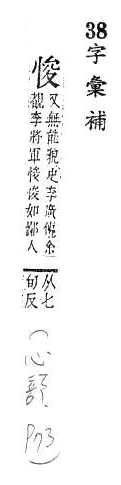 38字彙補
悛
又無能貌史李廣傳余
覩李將軍悛悛如鄙人
从七
旬反
(心 P73)